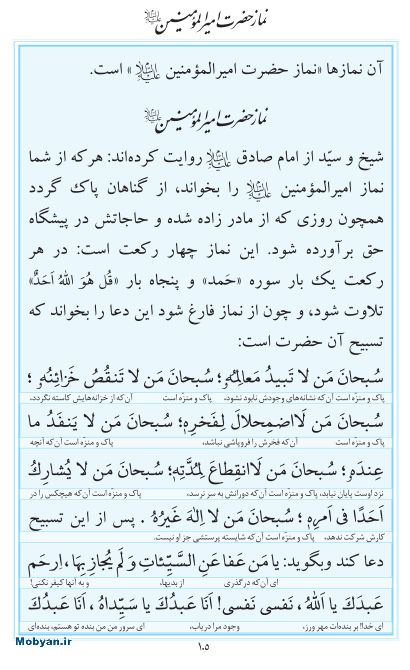 نماز حضرت امیرالمؤمنین علیه‌السلام
آن نمازها «نماز حضرت امیرالمؤمنین علیه‌السلام» است.
نماز حضرت امیرالمؤمنین علیه‌السلام
شیخ و سیّد از امام صادق علیه‌السلام روایت کرده‌اند: هرکه از شما
نماز امیرالمؤمنین علیه‌السلام را بخواند، از گناهان پاک گردد
همچون روزی که از مادر زاده شده و حاجاتش در پیشگاه
حق برآورده شود. این نماز چهار رکعت است: در هر
رکعت یک بار سوره «حَمد» و پنجاه بار «قُل هُوَ اللّٰهُ اَحَدٌ»
تلاوت شود، و چون از نماز فارغ شود این دعا را بخواند که
تسبیح آن حضرت است:
سُبحانَ مَن لا تَبیدُ مَعالِمُهُ؛ سُبحانَ مَن لا تَنقُصُ خَزائِنُهُ؛
پاک و منزّه است آن‌که نشانه‌های وجودش نابود نشود، پاک و منزّه است آن‌که از خزانه‌هایش کاسته نگردد،
سُبحانَ مَن لَااضمِحلالَ لِفَخرِهِ؛ سُبحانَ مَن لا یَنفَدُ ما
پاک و منزّه است آن‌که فخرش را فروپاشی نباشد، پاک و منزّه است آن‌که آنچه
عِندَهُ؛ سُبحانَ مَن لَاانقِطاعَ لِمُدَّتِهِ؛ سُبحانَ مَن لا یُشارِكُ
نزد اوست پایان نیابد، پاک و منزّه است آن‌که دورانش به سر نرسد، پاک و منزّه است آن‌که هیچکس را در
اَحَدًا فی اَمرِهِ؛ سُبحانَ مَن لا اِلٰهَ غَیرُهُ. پس از این تسبیح
کارش شرکت ندهد، پاک و منزّه است آن‌که شایسته پرستشی جز او نیست.
دعا کند وبگوید: یا مَن عَفا عَنِ السَّیِّئاتِ وَ لَم یُجازِ بِها، اِرحَم
ای آن‌که درگذری از بدیها، و به آنها کیفر نکنی!
عَبدَكَ یا اَللّٰهُ، نَفسی نَفسی! اَنَا عَبدُكَ یا سَیِّداهُ، اَنَا عَبدُكَ
ای خدا! بر بنده‌ات مهر ورز، وجود مرا دریاب، ای سرور من من بنده تو هستم، بنده‌ای
۱۰۵
Mobyan.ir